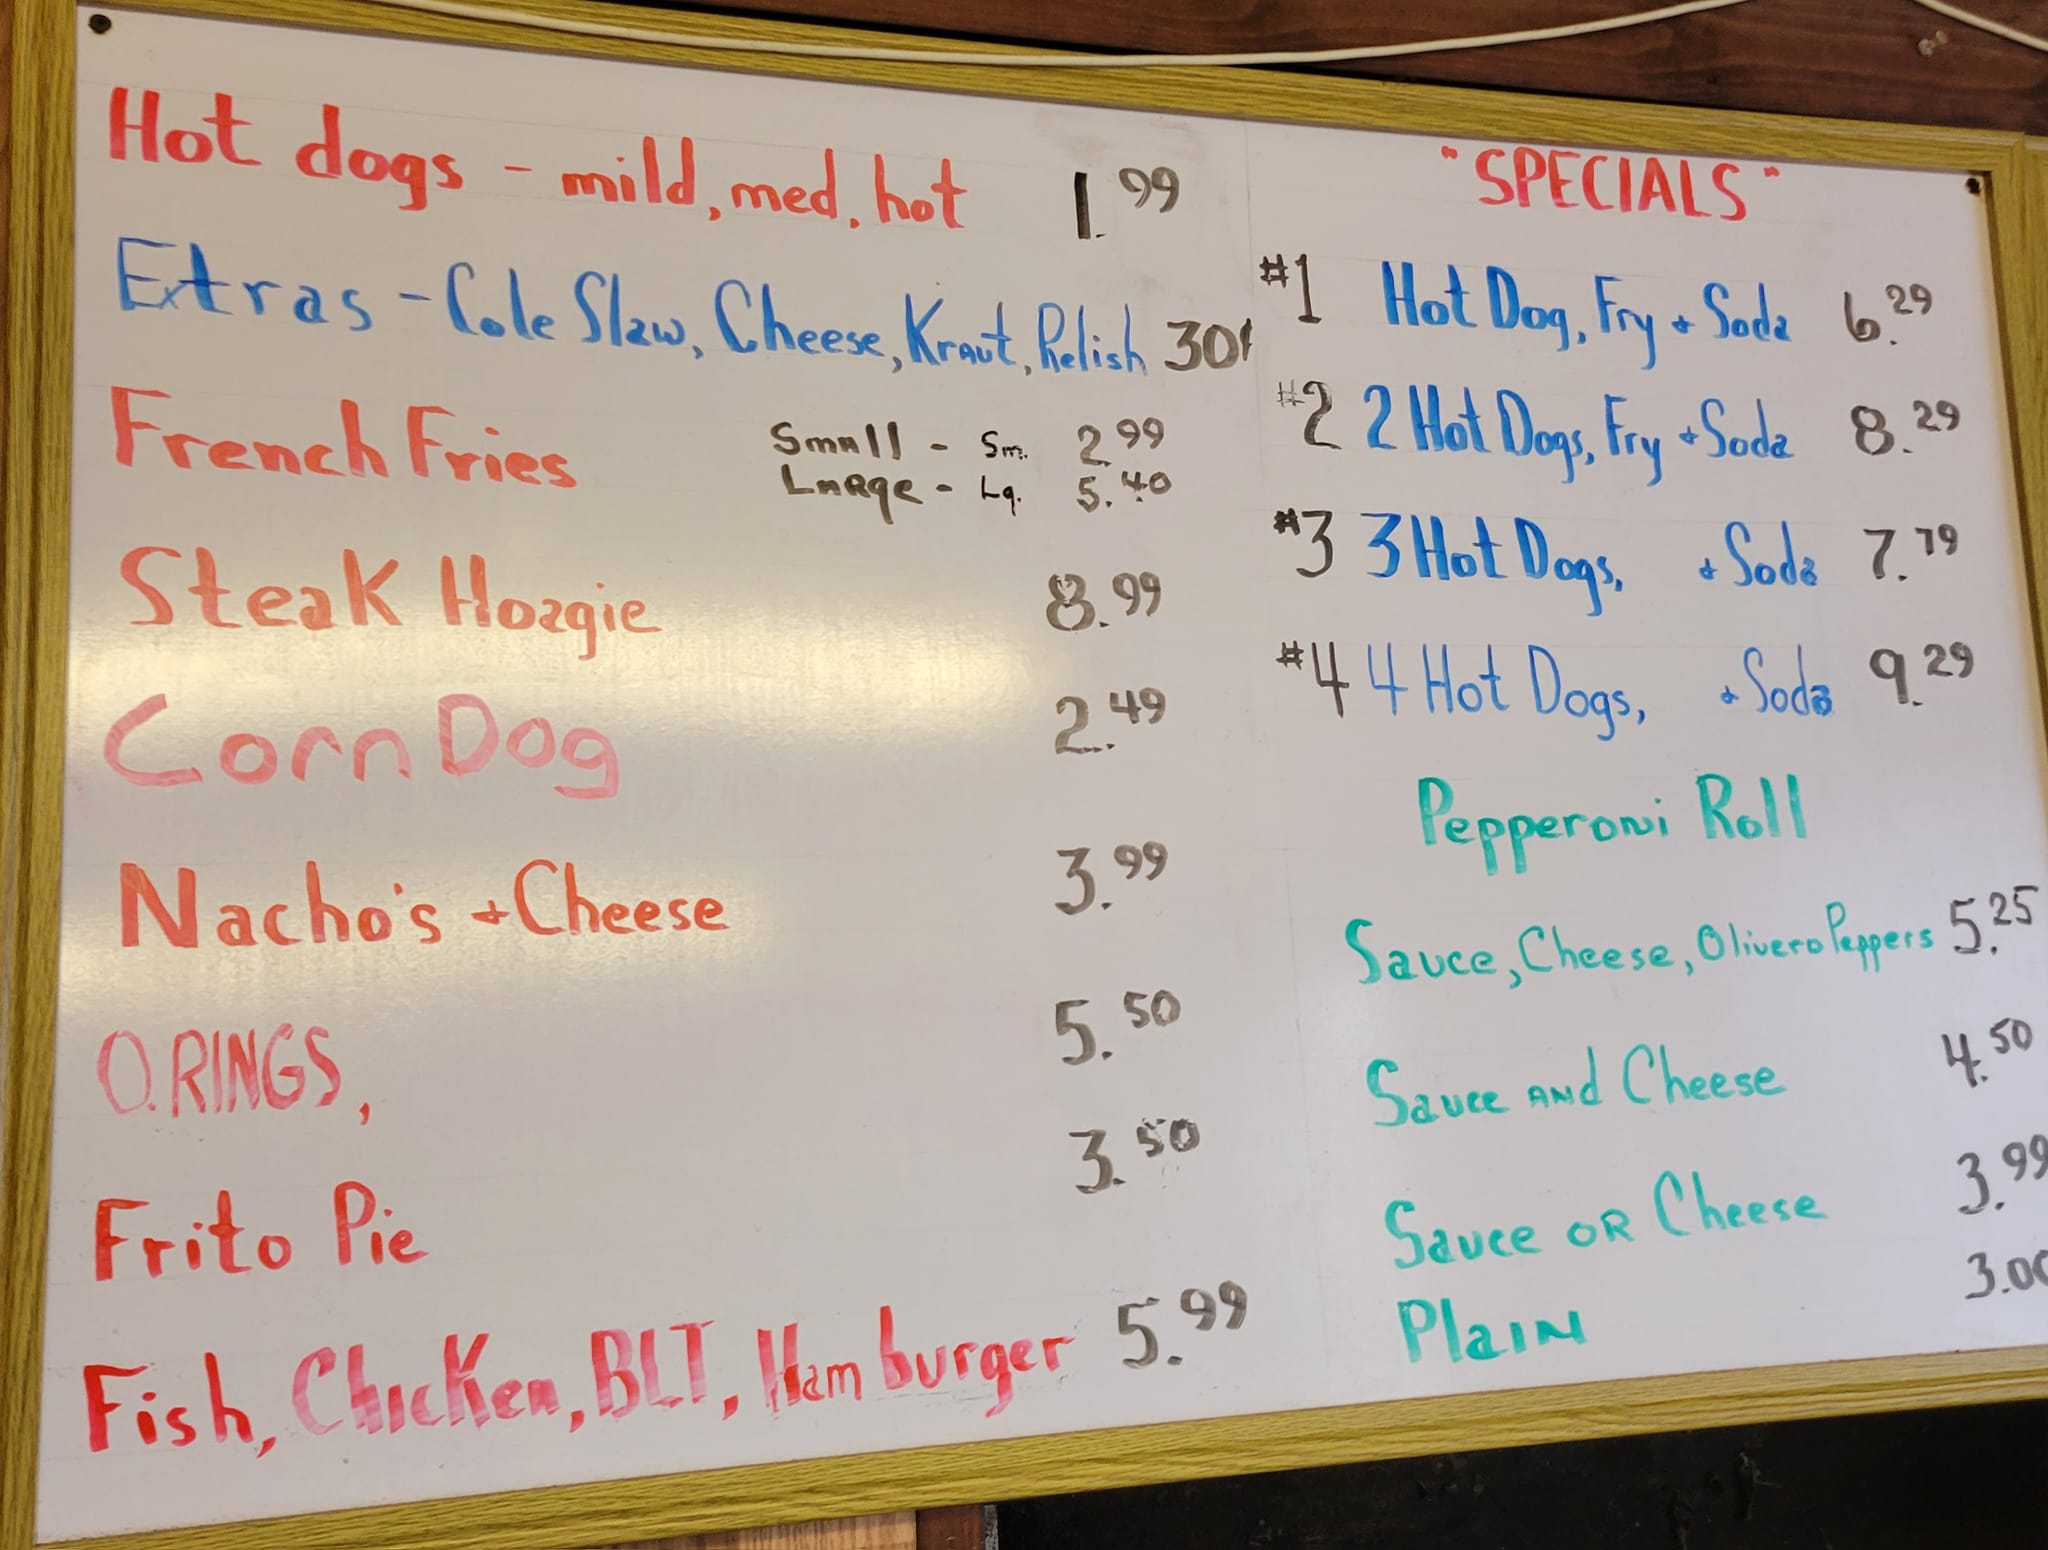 Hot dogs - mild, med, hot 1.99
Extras - Cole Slaw, Cheese, Kraut, Relish 30¢
French Fries Small - Sm. 2.99
Large - Lg. 5.40
Steak Hoagie 8.99
Corn Dog 2.49
Nacho's + Cheese 3.99
O.RINGS, 5.50
Frito Pie 3.50
Fish, Chicken, BLT, Hamburger 5.99
"SPECIALS"
#1 Hot Dog, Fry + Soda 6.29
#2 2 Hot Dogs, Fry + Soda 8.29
#3 3 Hot Dogs, + Soda 7.79
#4 4 Hot Dogs, + Soda 9.29
Pepperoni Roll
Sauce, Cheese, Olivero Peppers 5.25
Sauce and Cheese 4.50
Sauce OR Cheese 3.99
Plain 3.00